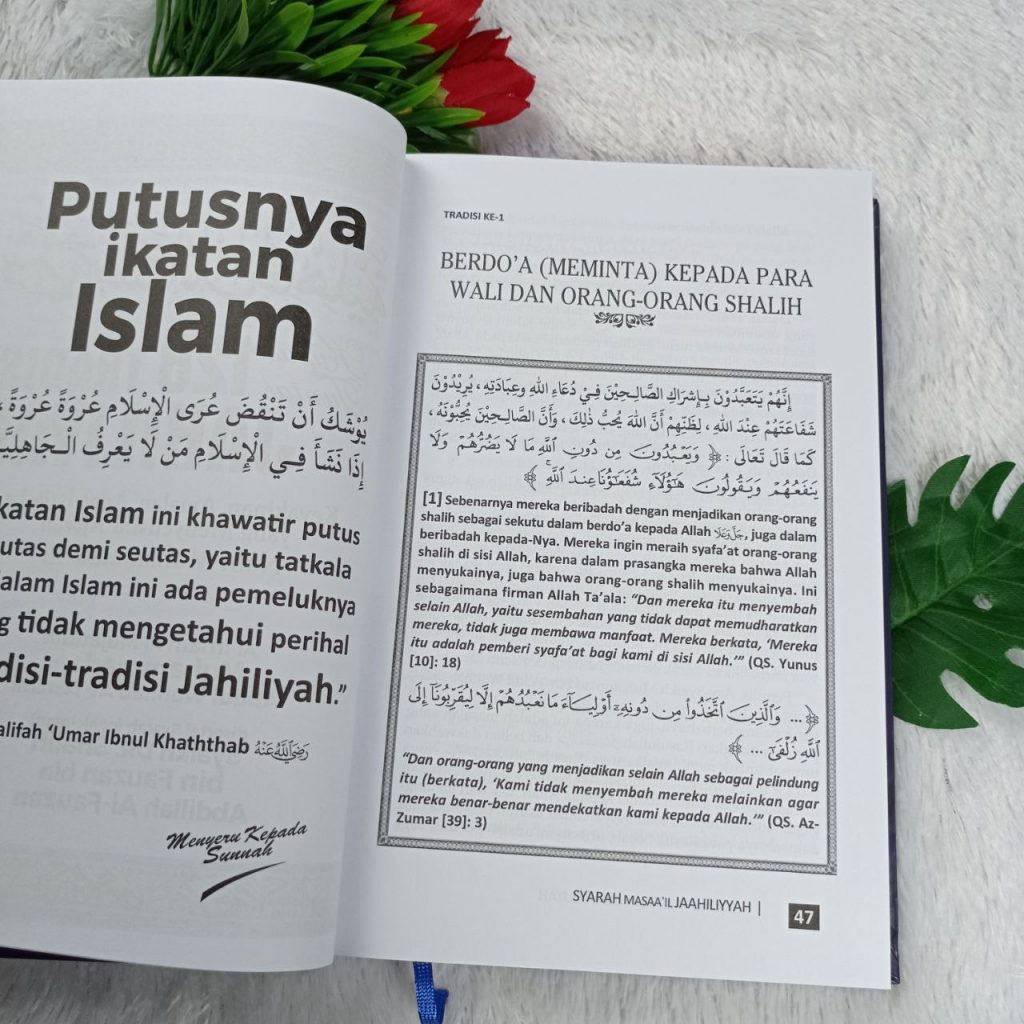 Putusnya
ikatan
Islam
يُوْشَكُ أَنْ تَنْقُضَ عُرَى الْإِسْلَامِ عُرْوَةً عُرْوَةً ،
إِذَا نَشَأَ فِي الْإِسْلَامِ مَنْ لَا يَعْرِفُ الْـجَاهِلِيَّـ
katan Islam ini khawatir putus
utas demi seutas, yaitu tatkala
dalam Islam ini ada pemeluknya
g tidak mengetahui perihal
disi-tradisi Jahiliyah."
alifah 'Umar Ibnul Khaththab رضي الله عنه
Menyeru Kepada
Sunnah
TRADISI KE-1
BERDO'A (MEMINTA) KEPADA PARA
WALI DAN ORANG-ORANG SHALIH
إِنَّهُمْ يَتَعَبَّدُوْنَ بِإِشْرَاكِ الصَّالِـحِيْنَ فِيْ دُعَاءِ اللهِ وعِبَادَتِهِ ، يُرِيْدُوْنَ
شَفَاعَتَهُمْ عِنْدَ اللهِ ، لِظَنِّهِمْ أَنَّ اللهَ يُحِبُّ ذٰلِكَ ، وَأَنَّ الصَّالِـحِيْنَ يُحِبُّوْنَهُ ،
كَمَا قَالَ تَعَالَى : ﴿ وَيَعْبُدُونَ مِن دُونِ ٱللَّهِ مَا لَا يَضُرُّهُمْ وَلَا
يَنفَعُهُمْ وَيَقُولُونَ هَٰٓؤُلَآءِ شُفَعَٰٓؤُنَا عِندَ ٱللَّهِ ﴾
[1] Sebenarnya mereka beribadah dengan menjadikan orang-orang
shalih sebagai sekutu dalam berdo'a kepada Allah جل وعلا, juga dalam
beribadah kepada-Nya. Mereka ingin meraih syafa'at orang-orang
shalih di sisi Allah, karena dalam prasangka mereka bahwa Allah
menyukainya, juga bahwa orang-orang shalih menyukainya. Ini
sebagaimana firman Allah Ta'ala: "Dan mereka itu menyembah
selain Allah, yaitu sesembahan yang tidak dapat memudharatkan
mereka, tidak juga membawa manfaat. Mereka berkata, 'Mereka
itu adalah pemberi syafa'at bagi kami di sisi Allah.'" (QS. Yunus
[10]: 18)
﴿ ... وَٱلَّذِينَ ٱتَّخَذُوا۟ مِن دُونِهِۦٓ أَوْلِيَآءَ مَا نَعْبُدُهُمْ إِلَّا لِيُقَرِّبُونَآ إِلَى
ٱللَّهِ زُلْفَىٰٓ ... ﴾
"Dan orang-orang yang menjadikan selain Allah sebagai pelindung
itu (berkata), 'Kami tidak menyembah mereka melainkan agar
mereka benar-benar mendekatkan kami kepada Allah.'" (QS. Az-
Zumar [39]: 3)
SYARAH MASAA'IL JAAHILIYYAH |
47